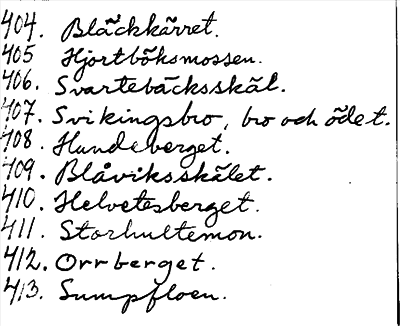 404. Bläckkärret.
405 Hjortböksmossen.
406. Svartebäcksskäl.
407. Svikingsbro, bro och ödet.
408. Hundeberget.
409. Blåviksskälet.
410. Helvetesberget.
411. Storhultemon.
412. Orrberget.
413. Sumpfloen.